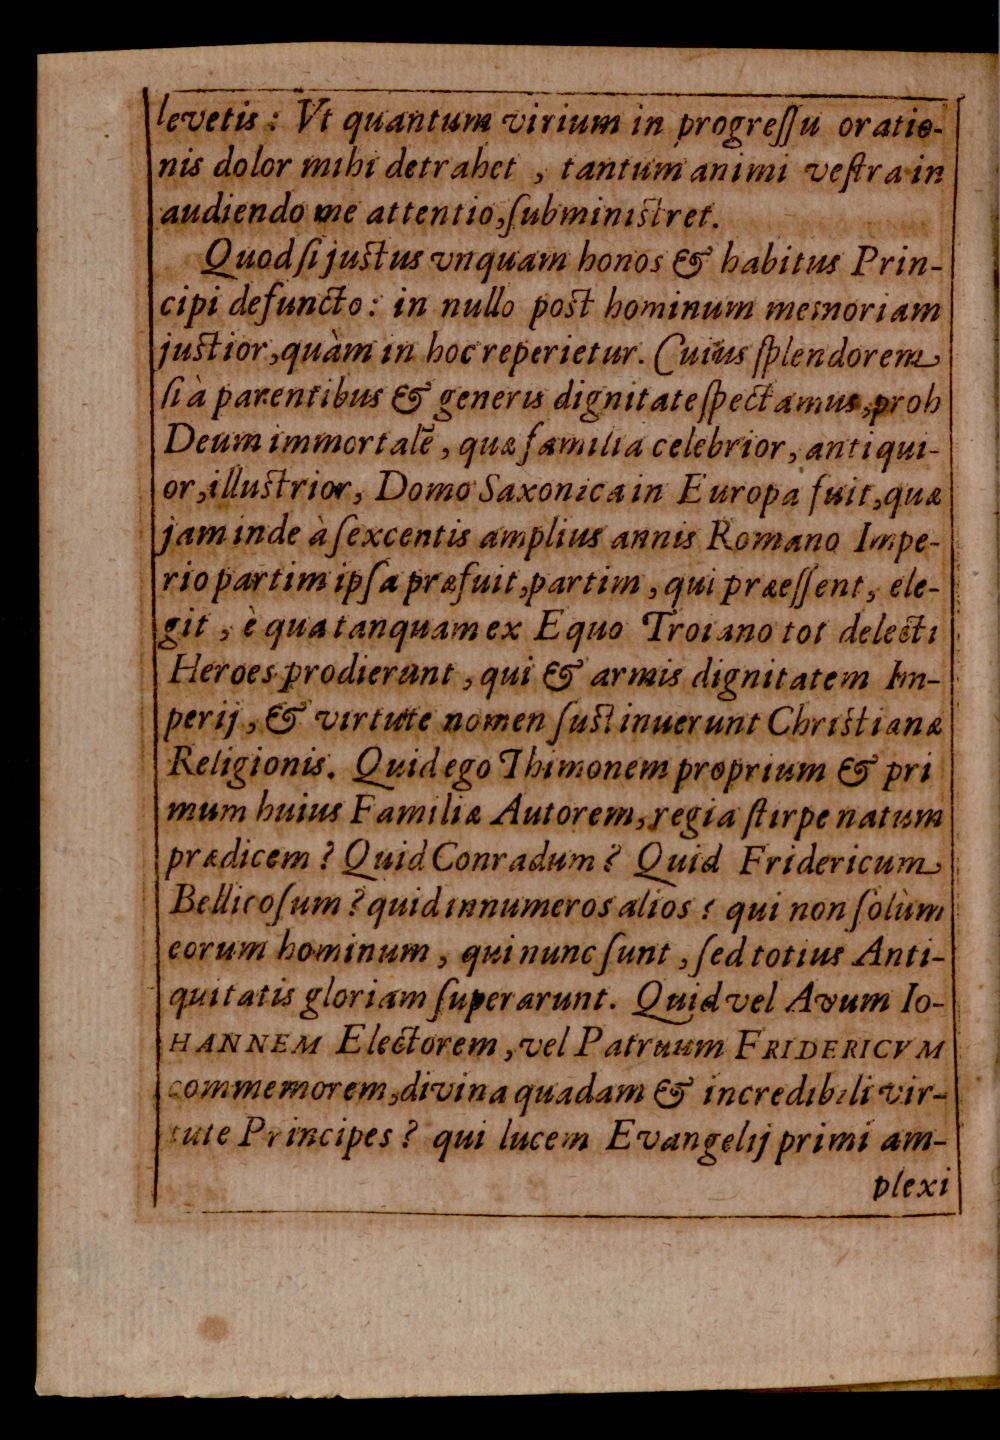 levetis: Vt quantum virium in progreſſu oratio-
nis dolor mihi detrahet, tantum animi veſtra in
audiendo me attentio, ſubminiſtret.
Quod ſi juſtus vnquam honos & habitus Prin-
cipi defuncto: in nullo poſt hominum memoriam
juſtior, quàm in hoc reperietur. Cuius ſplendorem
ſi à parentibus & generis dignitate ſpectamus, proh
Deum immortalē, quæ familia celebrior, antiqui-
or, illuſtrior, Domo Saxonica in Europa fuit, quæ
jam inde à ſexcentis amplius annis Romano Impe-
rio partim ipſa præfuit, partim, qui præeſſent, ele-
git, è qua tanquam ex Equo Troiano tot delecti
Heroes prodierunt, qui & armis dignitatem Im-
perij, & virtute nomen ſuſtinuerunt Chriſtianæ
Religionis. Quid ego Thimonem proprium & pri
mum huius Familiæ Autorem, regia ſtirpe natum
prædicem? Quid Conradum? Quid Fridericum
Bellicoſum? quid innumeros alios? qui non ſolùm
eorum hominum, qui nunc ſunt, ſed totius Anti-
quitatis gloriam ſuperarunt. Quid vel Avum Io-
HANNEM Electorem, vel Patruum FRIDERICVM
commemorem, divina quadam & incredibili vir-
tute Principes? qui lucem Evangelij primi am-
plexi